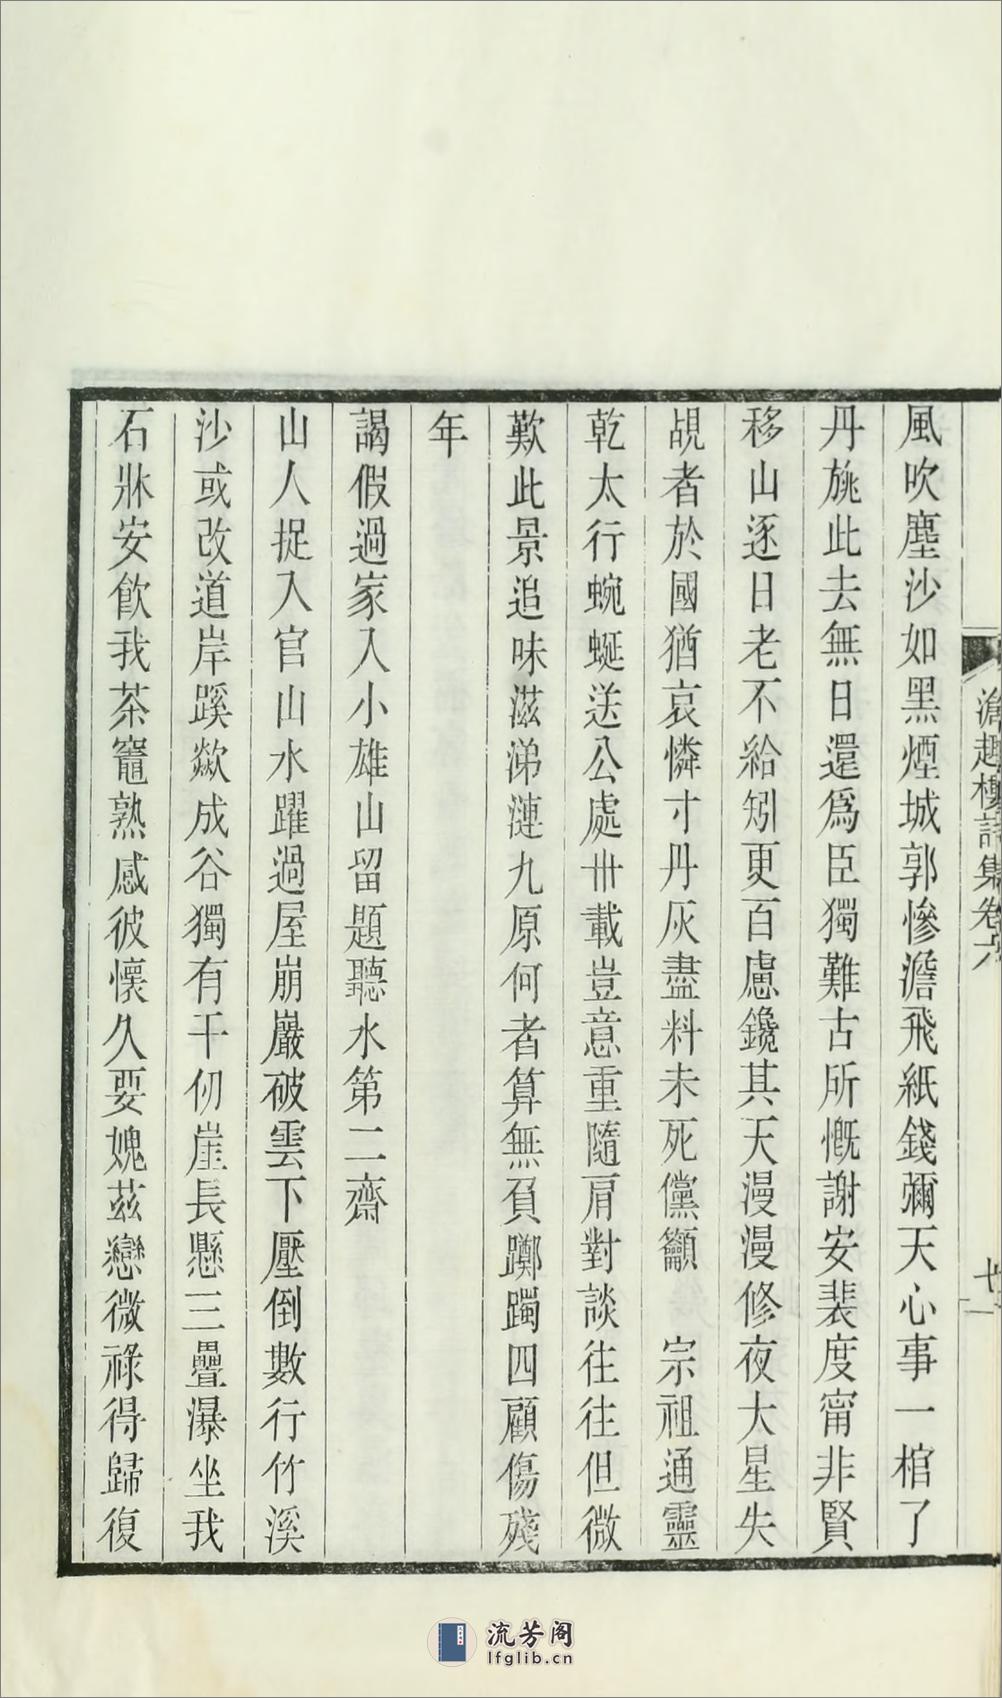 風吹塵沙如黑煙城郭慘澹飛紙錢彌天心事一棺了
丹旐此去無日還爲臣獨難古所慨謝安裴度甯非賢
移山逐日老不給矧更百慮鑱其天漫漫修夜大星失
覘者於國猶哀憐寸丹灰盡料未死儻籲　宗祖通靈
乾太行蜿蜒送公處卅載豈意重隨肩對談往往但微
歎此景追味滋涕漣九原何者算無負躑躅四顧傷殘
年
謁假過家入小雄山留題聽水第二齋
山人捉入官山水躍過屋崩巖破雲下壓倒數行竹溪
沙或改道岸蹊歘成谷獨有千仞崖長懸三疊瀑坐我
石牀安飮我茶竈熟感彼懷久要媿茲戀微祿得歸復
澹趣樓詩集卷六
流芳阁
lfglib.cn